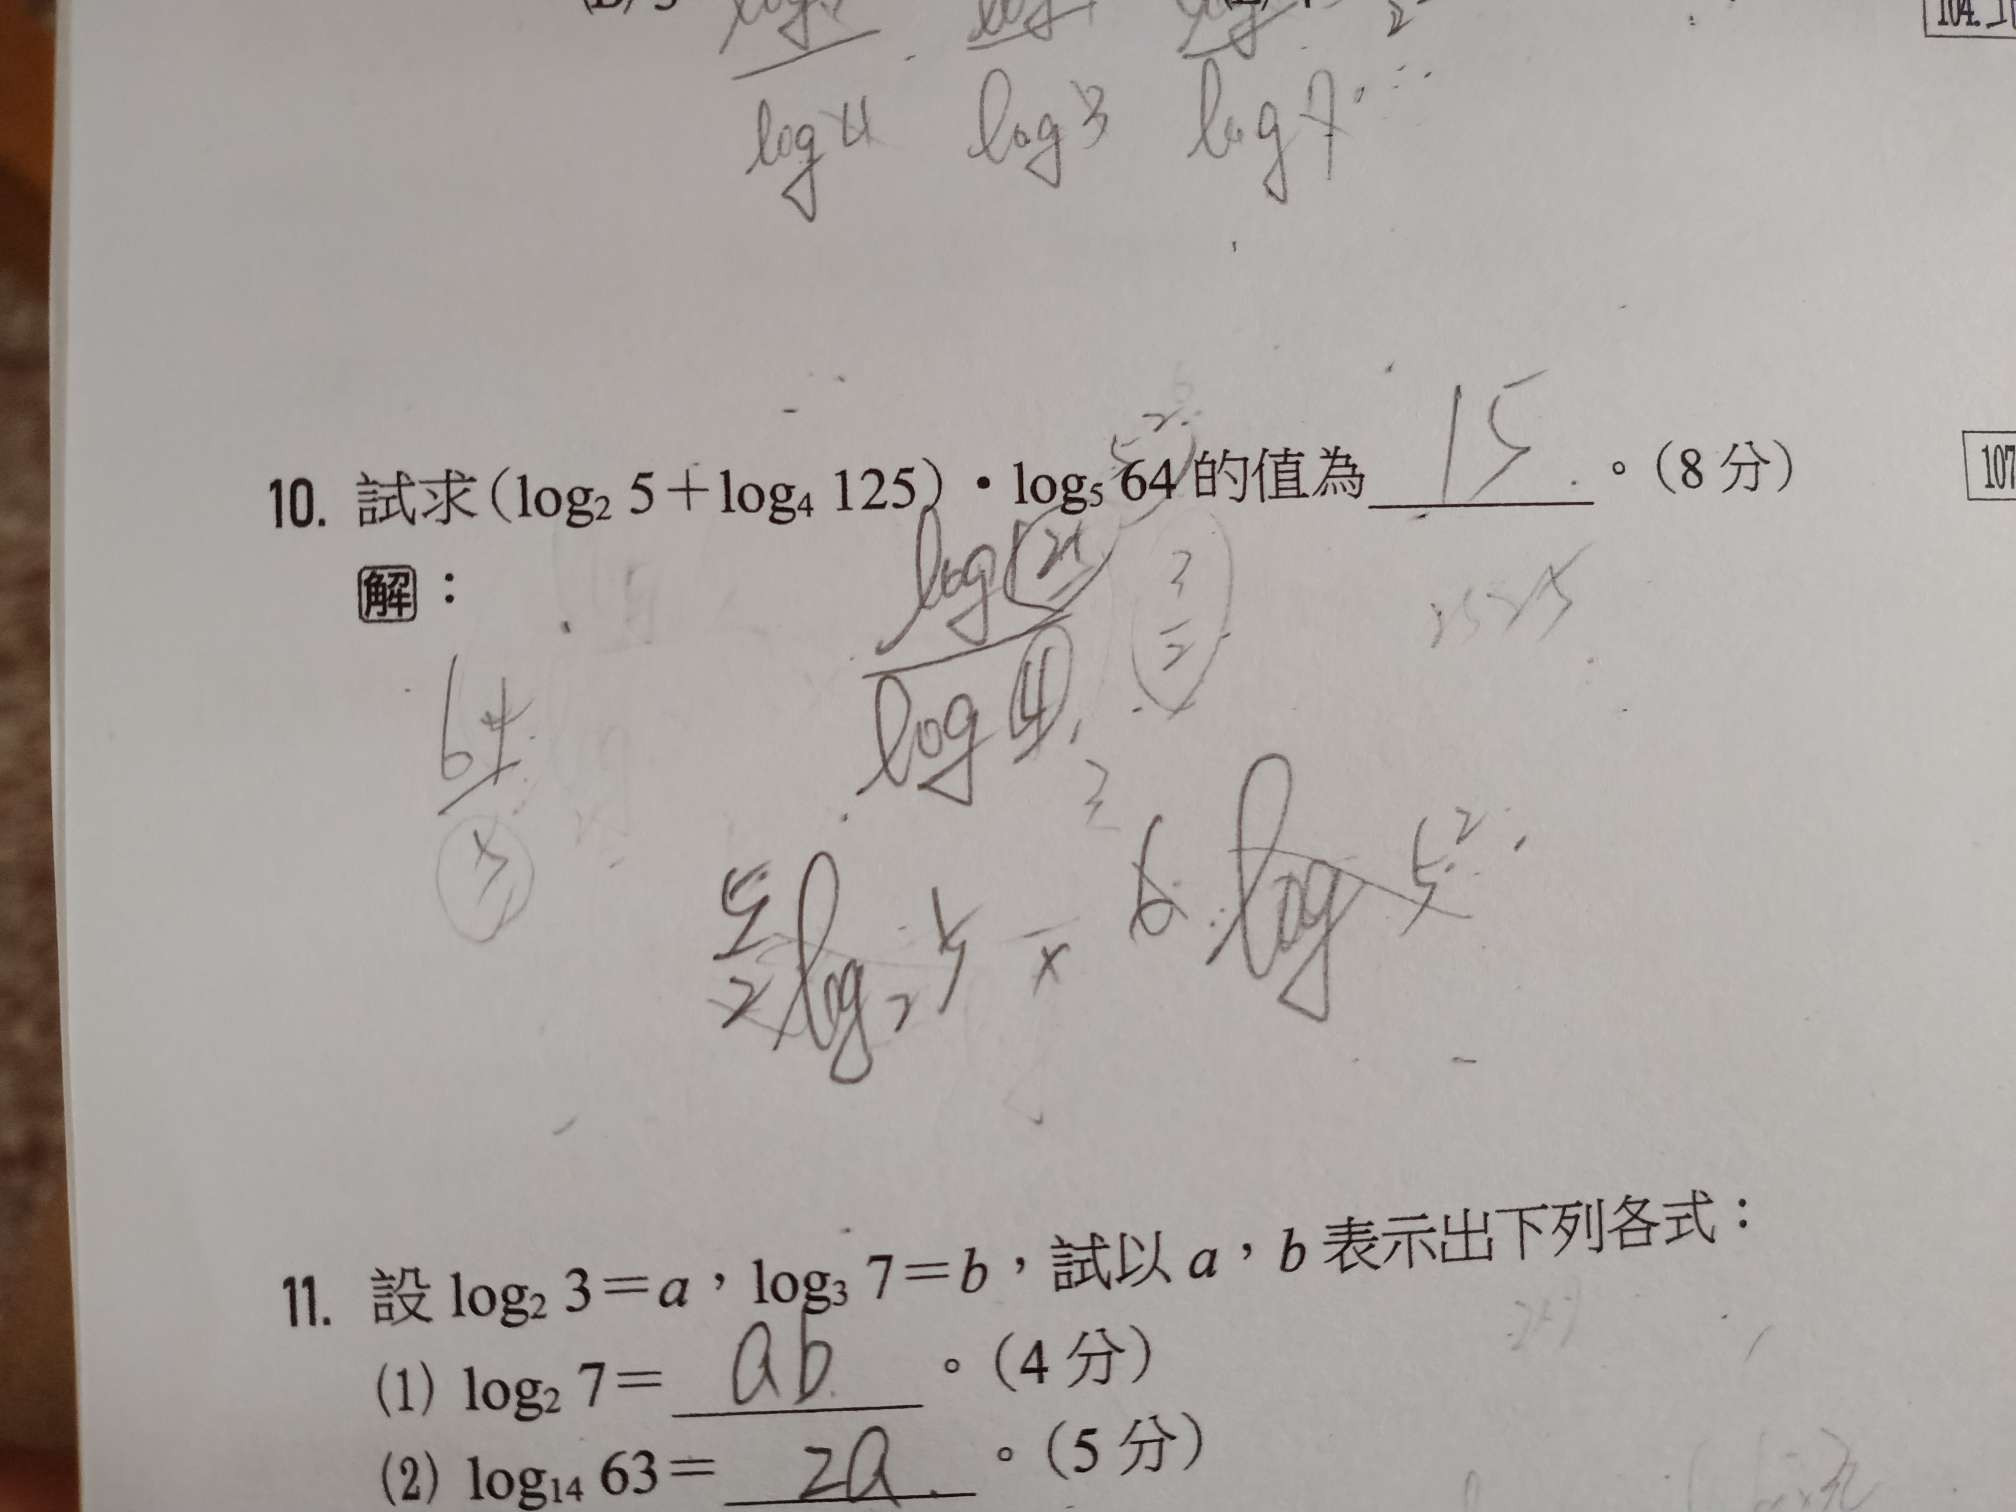 log 4 log 3 log 7
10. 試求(log₂ 5＋log₄ 125)・log₅ 64 的值為 15 。(8 分)
107
解：
log
log 4
64
3
2
5/2 log₂ 5 × 6 log 5 2
11. 設 log₂ 3＝a，log₃ 7＝b，試以 a，b 表示出下列各式：
(1) log₂ 7＝ ab 。(4 分)
(2) log₁₄ 63＝ 2a 。(5 分)